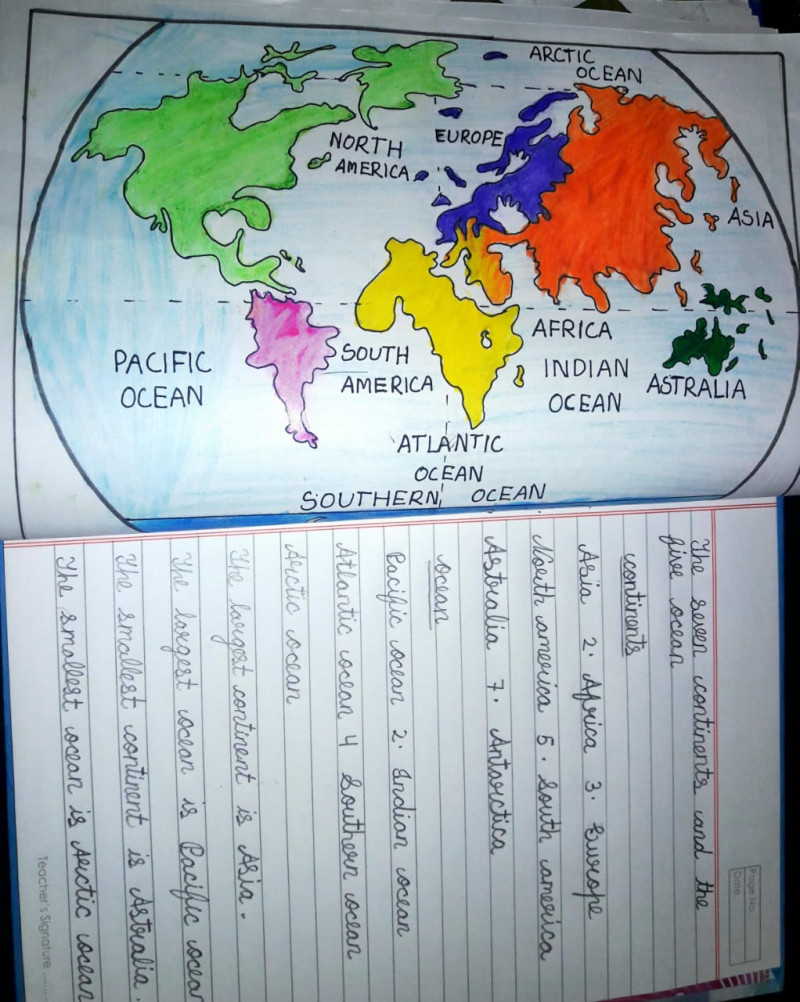 ARCTIC
OCEAN
NORTH
AMERICA
EUROPE
ASIA
PACIFIC
OCEAN
SOUTH
AMERICA
AFRICA
INDIAN
OCEAN
ASTRALIA
ATLANTIC
OCEAN
SOUTHERN OCEAN
Page No.
Date
The seven continents and the
five ocean
continents
Asia 2. Africa 3. Europe
North america 5. South america
Astralia 7. Antarctica
ocean
Pacific ocean 2. Indian ocean
Atlantic ocean 4 Southern ocean
Arctic ocean
The largest continent is Asia.
The largest ocean is Pacific ocean
The smallest continent is Astralia.
The smallest ocean is Arctic ocean
Teacher's Signature